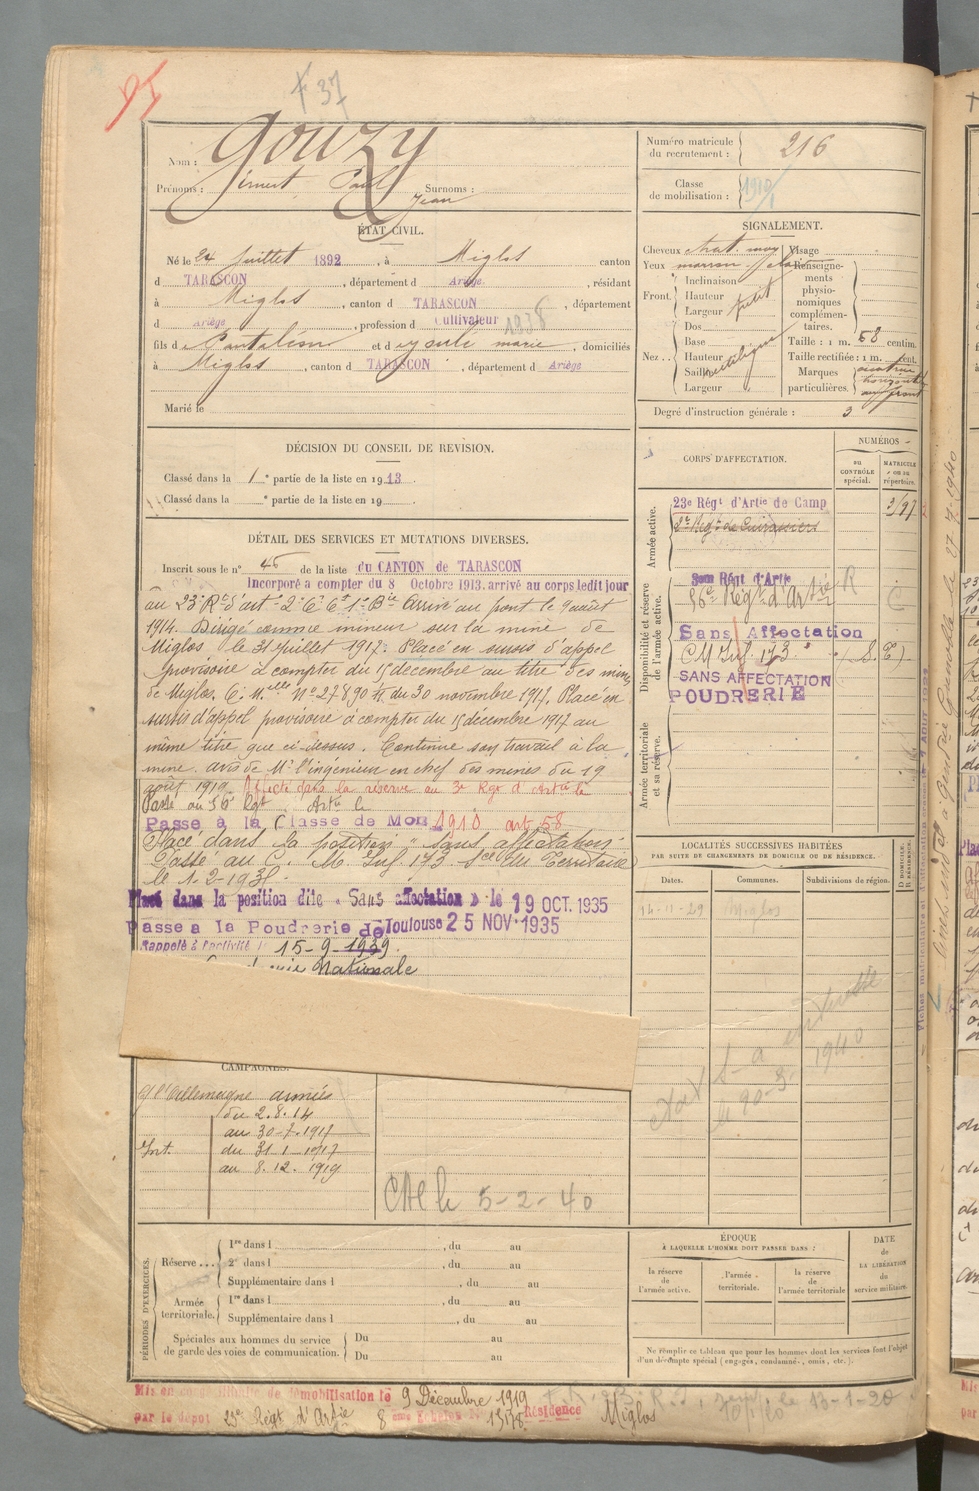 F 37
Nom : Gouzy
Prénoms : Ernest Paul Jean Surnoms :
Numéro matricule du recrutement : 216
Classe de mobilisation : 1910
ÉTAT CIVIL.
Né le 24 Juillet 1892, à Miglos canton
d TARASCON, département d Ariège, résidant
à Miglos, canton d TARASCON, département
d Ariège, profession d Cultivateur 1938
fils de Pantaléon et d marie, domiciliés
à Miglos, canton d TARASCON, département d Ariège
Marié le
SIGNALEMENT.
Cheveux chat. moy Visage
Yeux marron clair
Renseignements physionomiques complémentaires.
Front. Inclinaison
Hauteur
Largeur petit
Nez.. Dos
Base
Hauteur
Saillie rectiligne
Largeur
Taille : 1 m. 68 centim.
Taille rectifiée : 1 m. cent.
Marques particulières. cicatrice horizontale au front
Degré d'instruction générale : 3
DÉCISION DU CONSEIL DE REVISION.
Classé dans la 1e partie de la liste en 1913.
Classé dans la e partie de la liste en 19
DÉTAIL DES SERVICES ET MUTATIONS DIVERSES.
Inscrit sous le n° 46 de la liste du CANTON de TARASCON
Incorporé a compter du 8 Octobre 1913. arrivé au corps ledit jour
au 23e Rt d'art 2e Ct 1e Bie Arrivé au front le 9 août
1914. Dirigé comme mineur sur la mine de
Miglos le 31 juillet 1917. Placé en sursis d'appel
provisoire à compter du 15 décembre au titre des mines
de Miglos. C. Mlle N° 27890 du 30 novembre 1917. Placé en
sursis d'appel provisoire à compter du 15 décembre 1917 au
même titre que ci-dessus. Continue son travail à la
mine. avis de Mr l'ingénieur en chef des mines du 19
août 1919. Affecté dans la réserve au 3e Rgt d'Artie le
Passé au 56e Rgt Artie le
Passé à la Classe de Mob 1910 art 58
Placé dans la position "sans affectation
Passé au C. M. Inf 173 Son du Territoire
le 1-2-193
Placé dans la position dite « Sans affectation » le 19 OCT. 1935
Passe a la Poudrerie de Toulouse 25 NOV. 1935
Rappelé à l'activité le 15-9-1939.
Nationale
CORPS D'AFFECTATION.
NUMÉROS
au contrôle spécial.
matricule ou au répertoire.
Armée active.
23e Régt d'Artie de Camp
2e Régt de Cuirassiers
Disponibilité et réserve de l'armée active.
56e Régt d'Artie R
Sans Affectation
CM Inf. 173 (S. T)
SANS AFFECTATION
POUDRERIE
Armée territoriale et sa réserve.
LOCALITÉS SUCCESSIVES HABITÉES
PAR SUITE DE CHANGEMENTS DE DOMICILE OU DE RÉSIDENCE.
Dates. Communes. Subdivisions de région. D DOMICILE. R RÉSIDENCE.
14-11-29 Miglos
le 20-3- 1940
CAMPAGNES.
c/ l'Allemagne armées
du 2.8.14
au 30-7-1917
Int. du 31-1-1917
au 8.12.1919
CAC le 5-2-40
PÉRIODES D'EXERCICES.
Réserve... 1re dans l , du au
2e dans l , du au
Supplémentaire dans l , du au
Armée territoriale. 1re dans l , du au
Supplémentaire dans l , du au
Spéciales aux hommes du service de garde des voies de communication. Du au
Du au
ÉPOQUE
À LAQUELLE L'HOMME DOIT PASSER DANS :
la réserve de l'armée active.
l'armée territoriale.
la réserve de l'armée territoriale
DATE de LA LIBÉRATION du service militaire.
Ne remplir ce tableau que pour les hommes dont les services font l'objet
d'un décompte spécial (engagés, condamnés, omis, etc.).
Mis en congé illimité de démobilisation le 9 Décembre 1919
par le dépot 23e Régt d'Artie 8eme Echelon N° 15178 Résidence Miglos
le 13-1-20